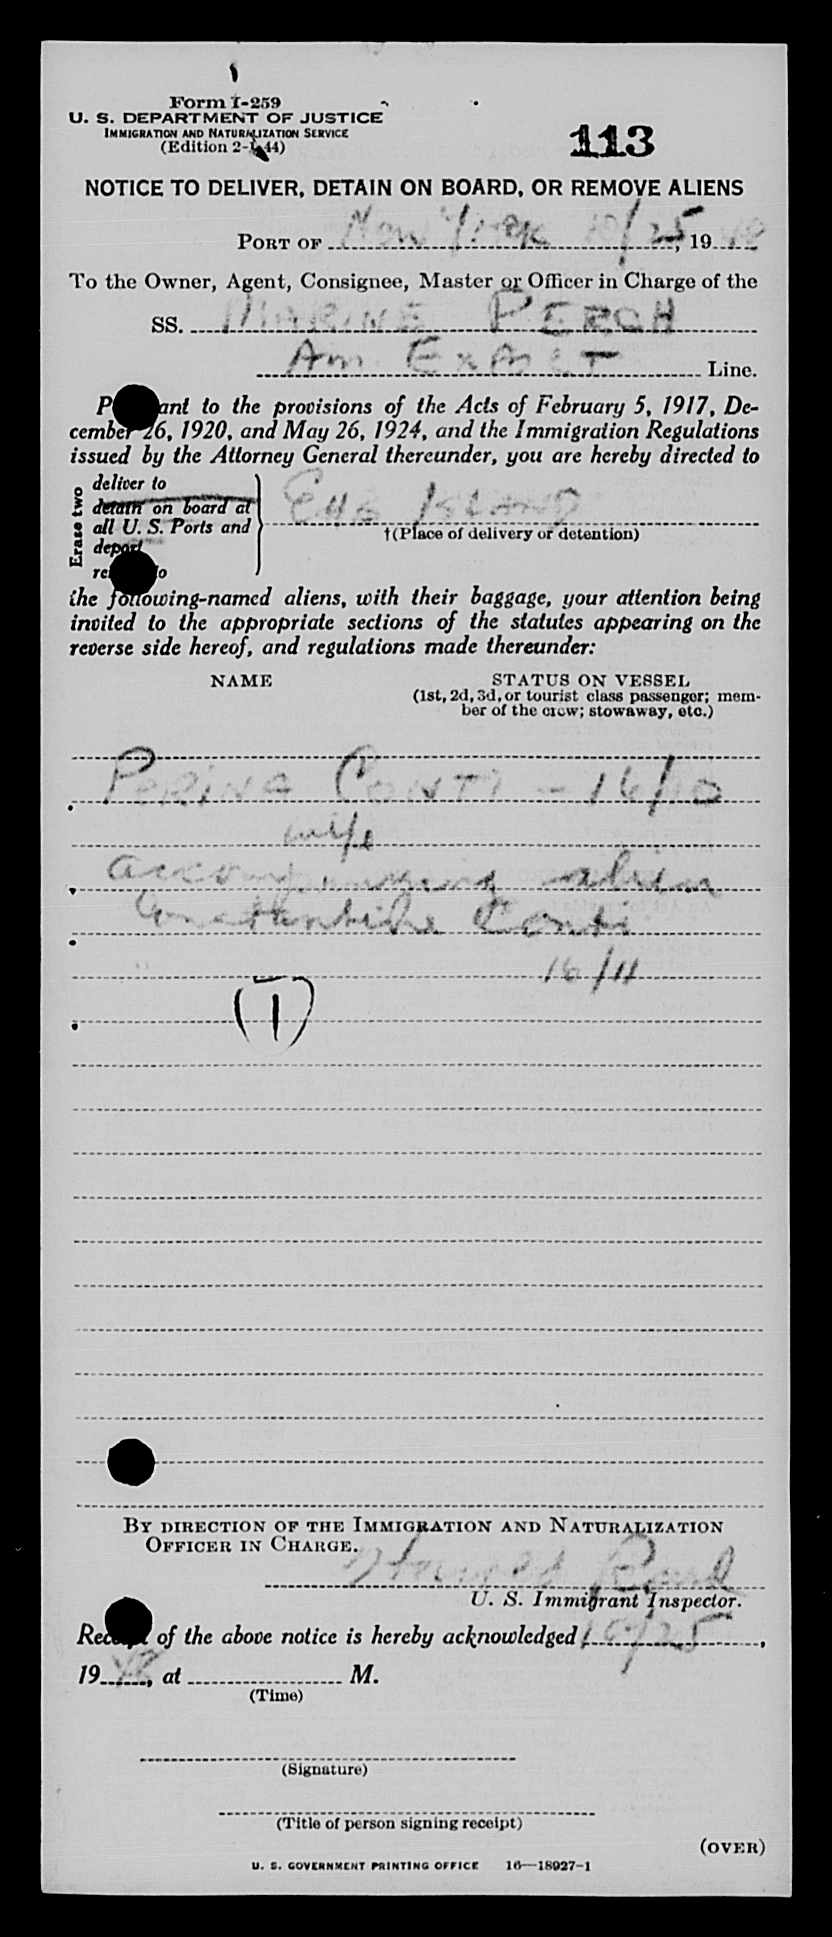 Form I-259
U. S. DEPARTMENT OF JUSTICE
IMMIGRATION AND NATURALIZATION SERVICE
(Edition 2-1-44)
113
NOTICE TO DELIVER, DETAIN ON BOARD, OR REMOVE ALIENS
PORT OF New York 10/25, 19 48
To the Owner, Agent, Consignee, Master or Officer in Charge of the
SS. MARINE PERCH
Am Export Line.
P ant to the provisions of the Acts of February 5, 1917, De-
cember 26, 1920, and May 26, 1924, and the Immigration Regulations
issued by the Attorney General thereunder, you are hereby directed to
Erase two
deliver to
detain on board at
all U. S. Ports and
deport
re o
Ellis ISLAND
†(Place of delivery or detention)
the following-named aliens, with their baggage, your attention being
invited to the appropriate sections of the statutes appearing on the
reverse side hereof, and regulations made thereunder:
NAME STATUS ON VESSEL
(1st, 2d, 3d, or tourist class passenger; mem-
ber of the crew; stowaway, etc.)
PERINA CONTI - 16/10
wife
accompanying alien
Conti
16/11
(1)
BY DIRECTION OF THE IMMIGRATION AND NATURALIZATION
OFFICER IN CHARGE.
U. S. Immigrant Inspector.
Receipt of the above notice is hereby acknowledged 10/25,
19 48, at M.
(Time)
(Signature)
(Title of person signing receipt)
(OVER)
U. S. GOVERNMENT PRINTING OFFICE 16—18927-1